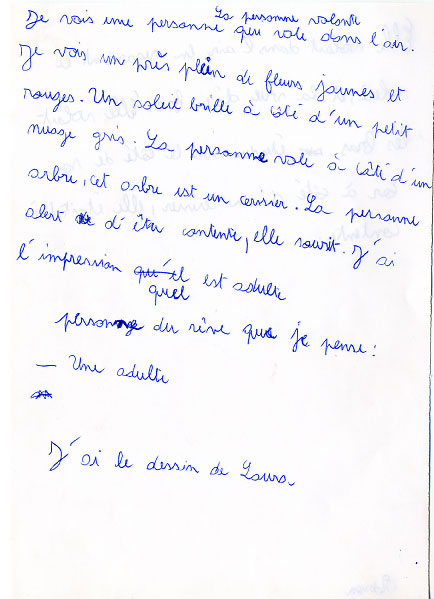 La personne volante
Je vois une personne qui vole dans l'air.
Je vois un près plein de fleurs jaunes et
rouges. Un soleil brille à côté d'un petit
nuage gris. La personne vole à côté d'un
arbre, cet arbre est un cerisier. La personne
d'être contente, elle sourit. J'ai
l'impression qu'il est adulte
quel
personnage du rêve que je pense :
— Une adulte
J'ai le dessin de Laura.